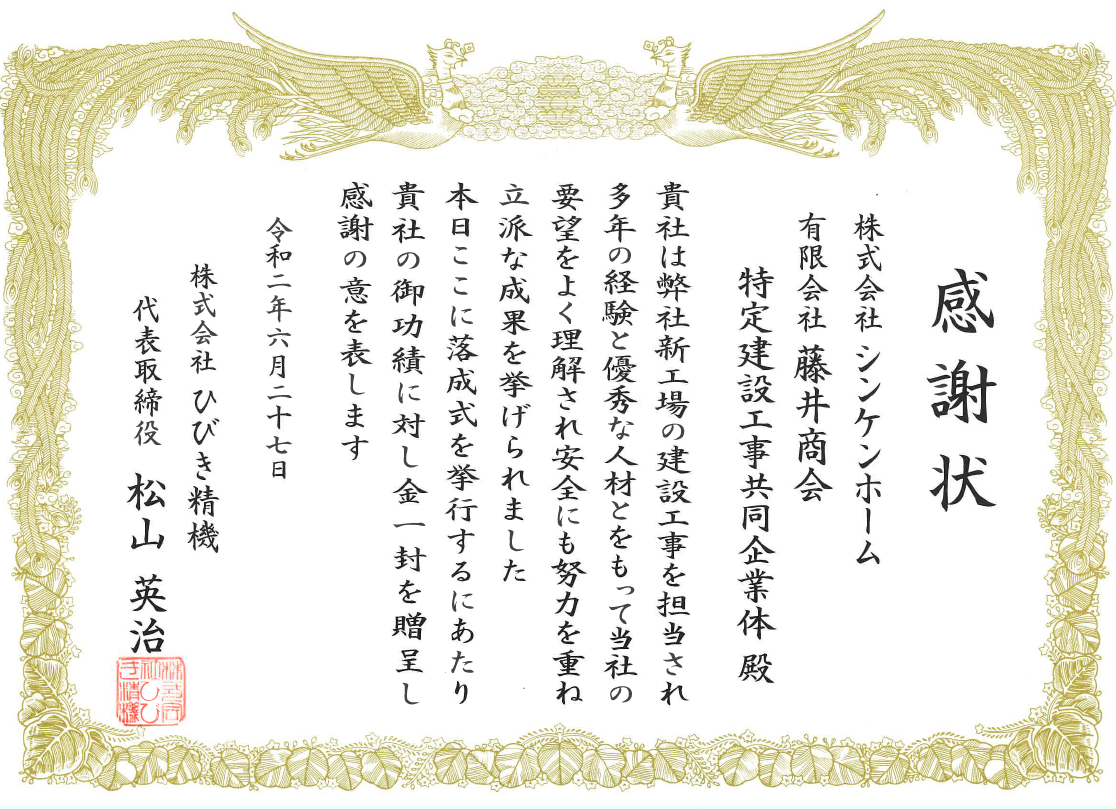 感謝状
株式会社 シンケンホーム
有限会社 藤井商会
特定建設工事共同企業体 殿
貴社は弊社新工場の建設工事を担当され
多年の経験と優秀な人材とをもって当社の
要望をよく理解され安全にも努力を重ね
立派な成果を挙げられました
本日ここに落成式を挙行するにあたり
貴社の御功績に対し金一封を贈呈し
感謝の意を表します
令和二年六月二十七日
株式会社 ひびき精機
代表取締役 松山 英治